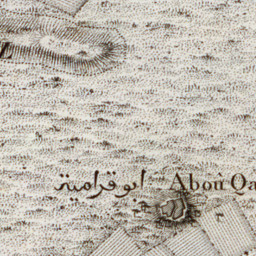 ابو قرامية Aboù Qa